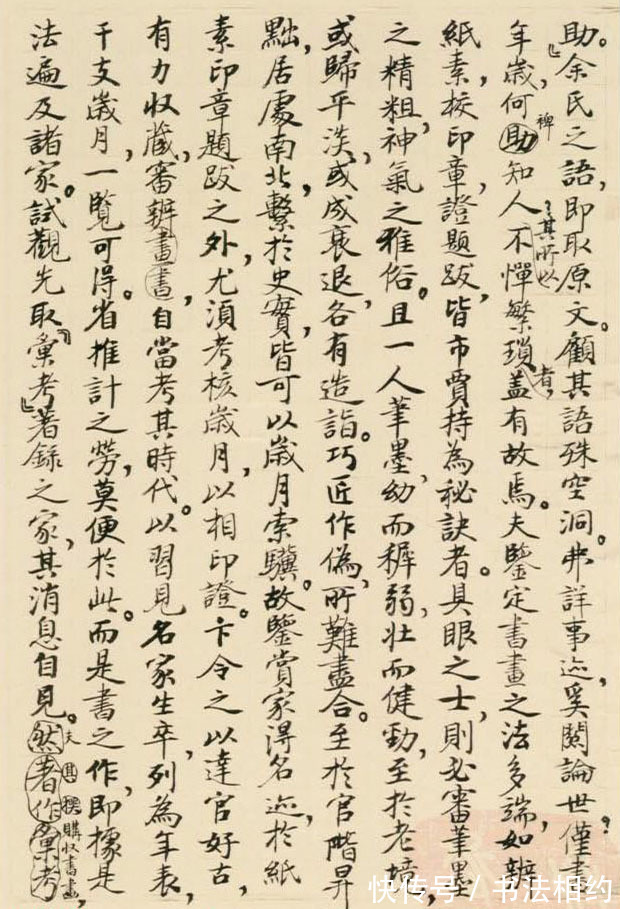 助。余氏之語，即取原文。顧其語殊空洞。弗詳事迹，奚關論世？僅書
年歲，何助知人不憚繁瑣者，蓋有故焉。夫鑒定書畫之法多端，如辨
裨
其所以
紙素，校印章，證題跋，皆市賈持為秘訣者。具眼之士，則必審筆墨
之精粗，神氣之雅俗。且一人筆墨，幼而穉弱，壯而健勁，至於老境，
或歸平淡，或成衰退，各有造詣。巧匠作偽，所難盡合。至於官階昇
黜，居處南北，繫於史實，皆可以歲月索驥。故鑒賞家得名迹於紙
素印章題跋之外，尤須考核歲月，以相印證。卞令之以達官好古，
有力收藏，審辨畫書，自當考其時代。以習見名家生卒，列為年表，
干支歲月，一覽可得。省推計之勞，莫便於此。而是書之作，即據是
法遍及諸家。試觀先取『彙考』著錄之家，其消息自見。然著作彙考，
夫其撰購收書畫
快传号/书法相约